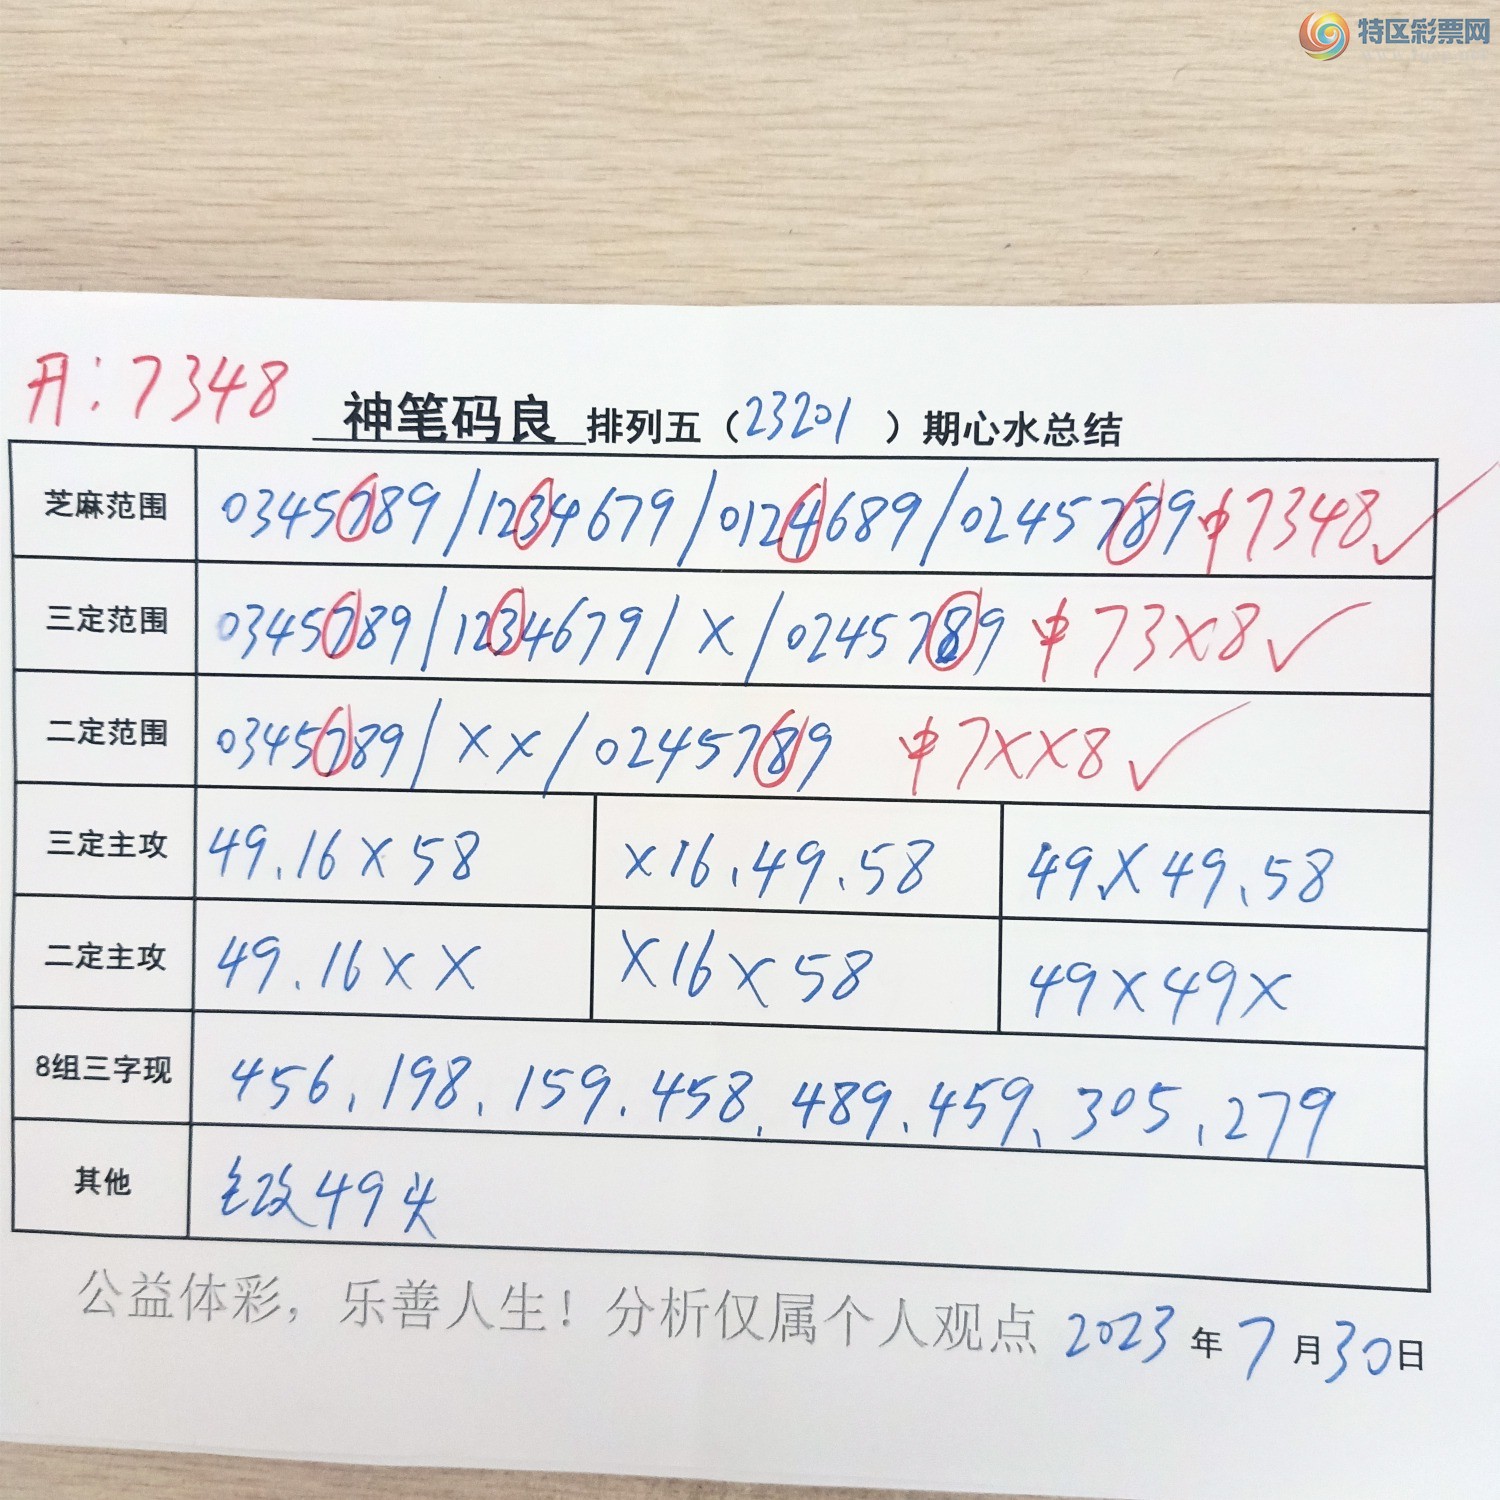 特区彩票网
开:7348
神笔码良 排列五(23201)期心水总结
芝麻范围 0345789/1234679/0124689/0245789 中7348✓
三定范围 0345789/1234679/X/0245789 中73X8✓
二定范围 0345789/XX/0245789 中7XX8✓
三定主攻 49.16X58 X16.49.58 49X49.58
二定主攻 49.16XX X16X58 49X49X
8组三字现 456.198.159.458.489.459.305.279
其他 主攻49头
公益体彩,乐善人生!分析仅属个人观点 2023年7月30日